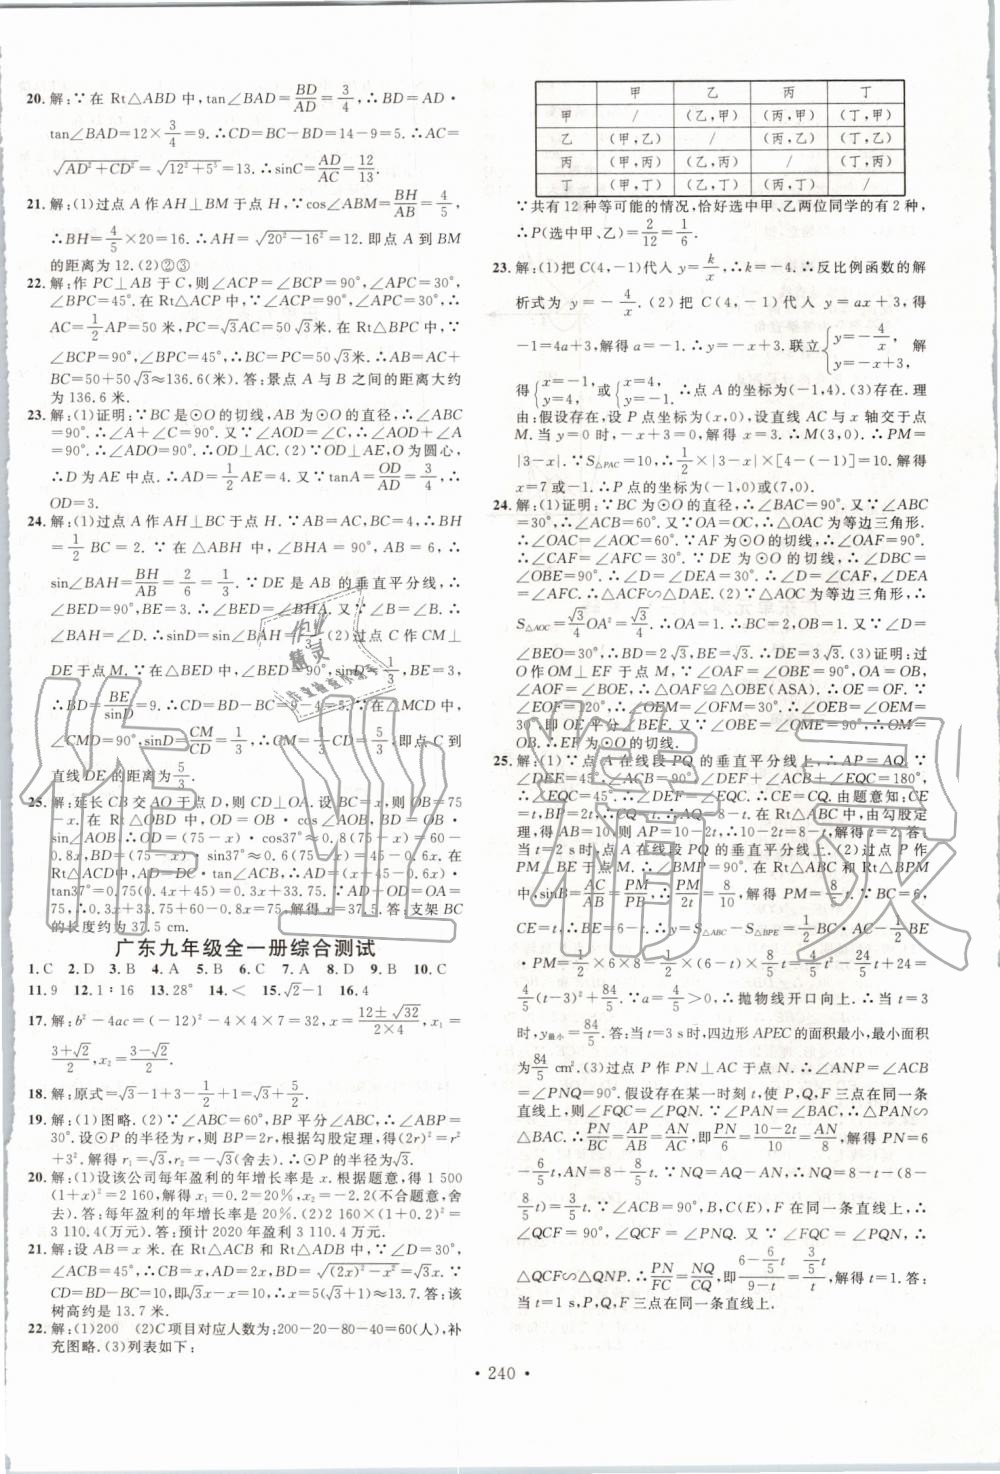 20. 解:∵在 Rt△ABD 中,tan∠BAD=BD/AD=3/4,∴BD=AD·
tan∠BAD=12×3/4=9.∴CD=BC-BD=14-9=5.∴AC=
√(AD²+CD²)=√(12²+5²)=13.∴sinC=AD/AC=12/13.
21. 解:(1)过点 A 作 AH⊥BM 于点 H,∵cos∠ABM=BH/AB=4/5,
∴BH=4/5×20=16.∴AH=√(20²-16²)=12.即点 A 到 BM
的距离为 12.(2)②③
22. 解:作 PC⊥AB 于 C,则∠ACP=∠BCP=90°,∠APC=30°,
∠BPC=45°.在 Rt△ACP 中,∵∠ACP=90°,∠APC=30°,∴
AC=1/2AP=50 米,PC=√3AC=50√3米.在 Rt△BPC 中,∵
∠BCP=90°,∠BPC=45°,∴BC=PC=50√3米.∴AB=AC+
BC=50+50√3≈136.6(米).答:景点 A 与 B 之间的距离大约
为 136.6 米.
23. 解:(1)证明:∵BC 是⊙O 的切线,AB 为⊙O 的直径,∴∠ABC
=90°.∴∠A+∠C=90°.又∵∠AOD=∠C,∴∠AOD+∠A
=90°.∴∠ADO=90°.∴OD⊥AC.(2)∵OD⊥AE,O 为圆心,
∴D 为 AE 中点.∴AD=1/2AE=4.又∵tanA=OD/AD=3/4,∴
OD=3.
24. 解:(1)过点 A 作 AH⊥BC 于点 H.∵AB=AC,BC=4,∴BH=
1/2BC=2.在△ABH 中,∠BHA=90°,AB=6,∴
sin∠BAH=BH/AB=2/6=1/3.∵DE 是 AB 的垂直平分线,∴
∠BED=90°,BE=3.∴∠BED=∠BHA.又∵∠B=∠B,∴
∠BAH=∠D.∴sinD=sin∠BAH=1/3.(2)过点 C 作 CM⊥
DE 于点 M.在△BED 中,∠BED=90°,sinD=1/3,BE=3,
∴BD=BE/sinD=9.∴CD=BD-BC=9-4=5.∵在△MCD 中,
∠CMD=90°,sinD=CM/CD=1/3,∴CM=CD/3=5/3.即点 C 到
直线 DE 的距离为5/3.
25. 解:延长 CB 交 AO 于点 D,则 CD⊥OA.设 BC=x,则 OB=75
-x.在 Rt△OBD 中,OD=OB·cos∠AOB,BD=OB·
sin∠AOB.∴OD=(75-x)·cos37°≈0.8(75-x)=60-
0.8x,BD=(75-x)·sin37°≈0.6(75-x)=45-0.6x.在
Rt△ACD中,AD=DC·tan∠ACB,∴AD=(x+45-0.6x)·
tan37°=0.75(0.4x+45)=0.3x+33.75.∵AD+OD=OA=
75,∴0.3x+33.75+60-0.8x=75,解得 x=37.5.答:支架 BC
的长度约为 37.5 cm.
广东九年级全一册综合测试
1. C 2. D 3. B 4. A 5. B 6. C 7. A 8. D 9. B 10. C
11. 9 12. 1∶16 13. 28° 14. < 15. √2-1 16. 4
17. 解:b²-4ac=(-12)²-4×4×7=32,x=(12±√32)/(2×4),x₁=
(3+√2)/2,x₂=(3-√2)/2.
18. 解:原式=√3-1+3-1/2+1=√3+5/2.
19. 解:(1)图略.(2)∵∠ABC=60°,BP 平分∠ABC,∴∠ABP=
30°.设⊙P 的半径为 r,则 BP=2r,根据勾股定理,得(2r)²=r²
+3².解得 r₁=√3,r₂=-√3(舍去).∴⊙P 的半径为√3.
20. 解:(1)设该公司每年盈利的年增长率是 x.根据题意,得 1 500
(1+x)²=2 160,解得 x₁=0.2=20%,x₂=-2.2(不合题意,舍
去).答:每年盈利的年增长率是 20%.(2)2 160×(1+0.2)=2
3 110.4(万元).答:预计 2020 年盈利 3 110.4 万元.
21. 解:设 AB=x 米.在 Rt△ACB 和 Rt△ADB 中,∵∠D=30°,
∠ACB=45°,∴AC=AB=x,AD=2x,BD=√((2x)²-x²)=√3x.∵
CD=BD-BC=10,即√3x-x=10,∴x=5(√3+1)≈13.7.答:该
树高约是 13.7 米.
22. 解:(1)200 (2)C 项目对应人数为:200-20-80-40=60(人),补
充图略.(3)列表如下:
甲 乙 丙 丁
甲 / (乙,甲) (丙,甲) (丁,甲)
乙 (甲,乙) / (丙,乙) (丁,乙)
丙 (甲,丙) (乙,丙) / (丁,丙)
丁 (甲,丁) (乙,丁) (丙,丁) /
∵共有 12 种等可能的情况,恰好选中甲、乙两位同学的有 2 种,
∴P(选中甲、乙)=2/12=1/6.
23. 解:(1)把 C(4,-1)代入 y=k/x,∴k=-4.∴反比例函数的解
析式为 y=-4/x.(2)把 C(4,-1)代入 y=ax+3,得
-1=4a+3,解得 a=-1.∴y=-x+3.联立{y=-4/x, y=-x+3, 解
得{x=-1, y=4 或{x=4, y=-1. ∴点 A 的坐标为(-1,4).(3)存在.理
由:假设存在,设 P 点坐标为(x,0),设直线 AC 与 x 轴交于点
M.当 y=0 时,-x+3=0,解得 x=3.∴M(3,0).∴PM=
|3-x|.∵S△PAC=10,∴1/2×|3-x|×[4-(-1)]=10.解得
x=7或x=-1.∴P 点的坐标为(-1,0)或(7,0).
24. 解:(1)证明:∵BC 为⊙O 的直径,∴∠BAC=90°.又∵∠ABC
=30°,∴∠ACB=60°.又∵OA=OC,∴△OAC 为等边三角形.
∴∠OAC=∠AOC=60°.∵AF 为⊙O 的切线,∴∠OAF=90°.
∴∠CAF=∠AFC=30°.∵DE 为⊙O 的切线,∴∠DBC=
∠OBE=90°.∴∠D=∠DEA=30°.∴∠D=∠CAF,∠DEA=
∠AFC.∴△ACF∽△DAE.(2)∵△AOC 为等边三角形,∴
S△AOC=√3/4OA²=√3/4.∴OA=1.∴BC=2,OB=1.又∵∠D=
∠BEO=30°,∴BD=2√3,BE=√3.∴DE=3√3.(3)证明:过
O 作 OM⊥EF 于点 M,∵∠OAF=∠OBE=90°,OA=OB,
∠AOF=∠BOE,∴△OAF≌△OBE(ASA).∴OE=OF.∵
∠EOF=120°,∴∠OEM=∠OFM=30°.∴∠OEB=∠OEM
=30°,即 OE 平分∠BEF.又∵∠OBE=∠OME=90°,∴OM=
OB.∴EF 为⊙O 的切线.
25. 解:(1)∵点 A 在线段 PQ 的垂直平分线上,∴AP=AQ.∵
∠DEF=45°,∠ACB=90°,∠DEF+∠ACB+∠EQC=180°,
∴∠EQC=45°.∴∠DEF=∠EQC.∴CE=CQ.由题意知:CE
=t,BP=2t,∴CQ=t.∴AQ=8-t.在 Rt△ABC 中,由勾股定
理,得 AB=10,则 AP=10-2t.∴10-2t=8-t,解得 t=2.答:
当 t=2 s 时,点 A 在线段 PQ 的垂直平分线上.(2)过点 P 作
PM⊥BE 于点 M,∴∠BMP=90°.在 Rt△ABC 和 Rt△BPM
中,sinB=AC/AB=PM/PB,∴PM/2t=8/10,解得 PM=8/5t.∵BC=6,
CE=t,∴BE=6-t.∴y=S△ABC-S△BPE=1/2BC·AC-1/2BE
·PM=1/2×6×8-1/2×(6-t)×8/5t=4/5t²-24/5t+24=
4/5(t-3)²+84/5.∵a=4/5>0,∴抛物线开口向上.∴当 t=3
时,y最小=84/5.答:当 t=3 s时,四边形 APEC 的面积最小,最小面积
为84/5 cm².(3)过点 P 作 PN⊥AC 于点 N.∴∠ACB=
∠PNQ=90°.假设存在某一时刻 t,使 P,Q,F 三点在同一条
直线上,则∠FQC=∠PQN.∵∠PAN=∠BAC,∴△PAN∽
△BAC.∴PN/BC=AP/AB=AN/AC,即PN/6=(10-2t)/10=AN/8.解得 PN=6-
6/5t,AN=8-8/5t.∵NQ=AQ-AN,∴NQ=8-t-(8-
8/5t)=3/5t.∵∠ACB=90°,B,C(E),F 在同一条直线上,∴
∠QCF=90°.∴∠QCF=∠PNQ.又∵∠FQC=∠PQN,∴
△QCF∽△QNP.∴PN/FC=NQ/CQ,即(6-6/5t)/(9-t)=(3/5t)/t.解得 t=1.答:
当 t=1 s,P,Q,F 三点在同一条直线上.
· 240 ·
作业精灵